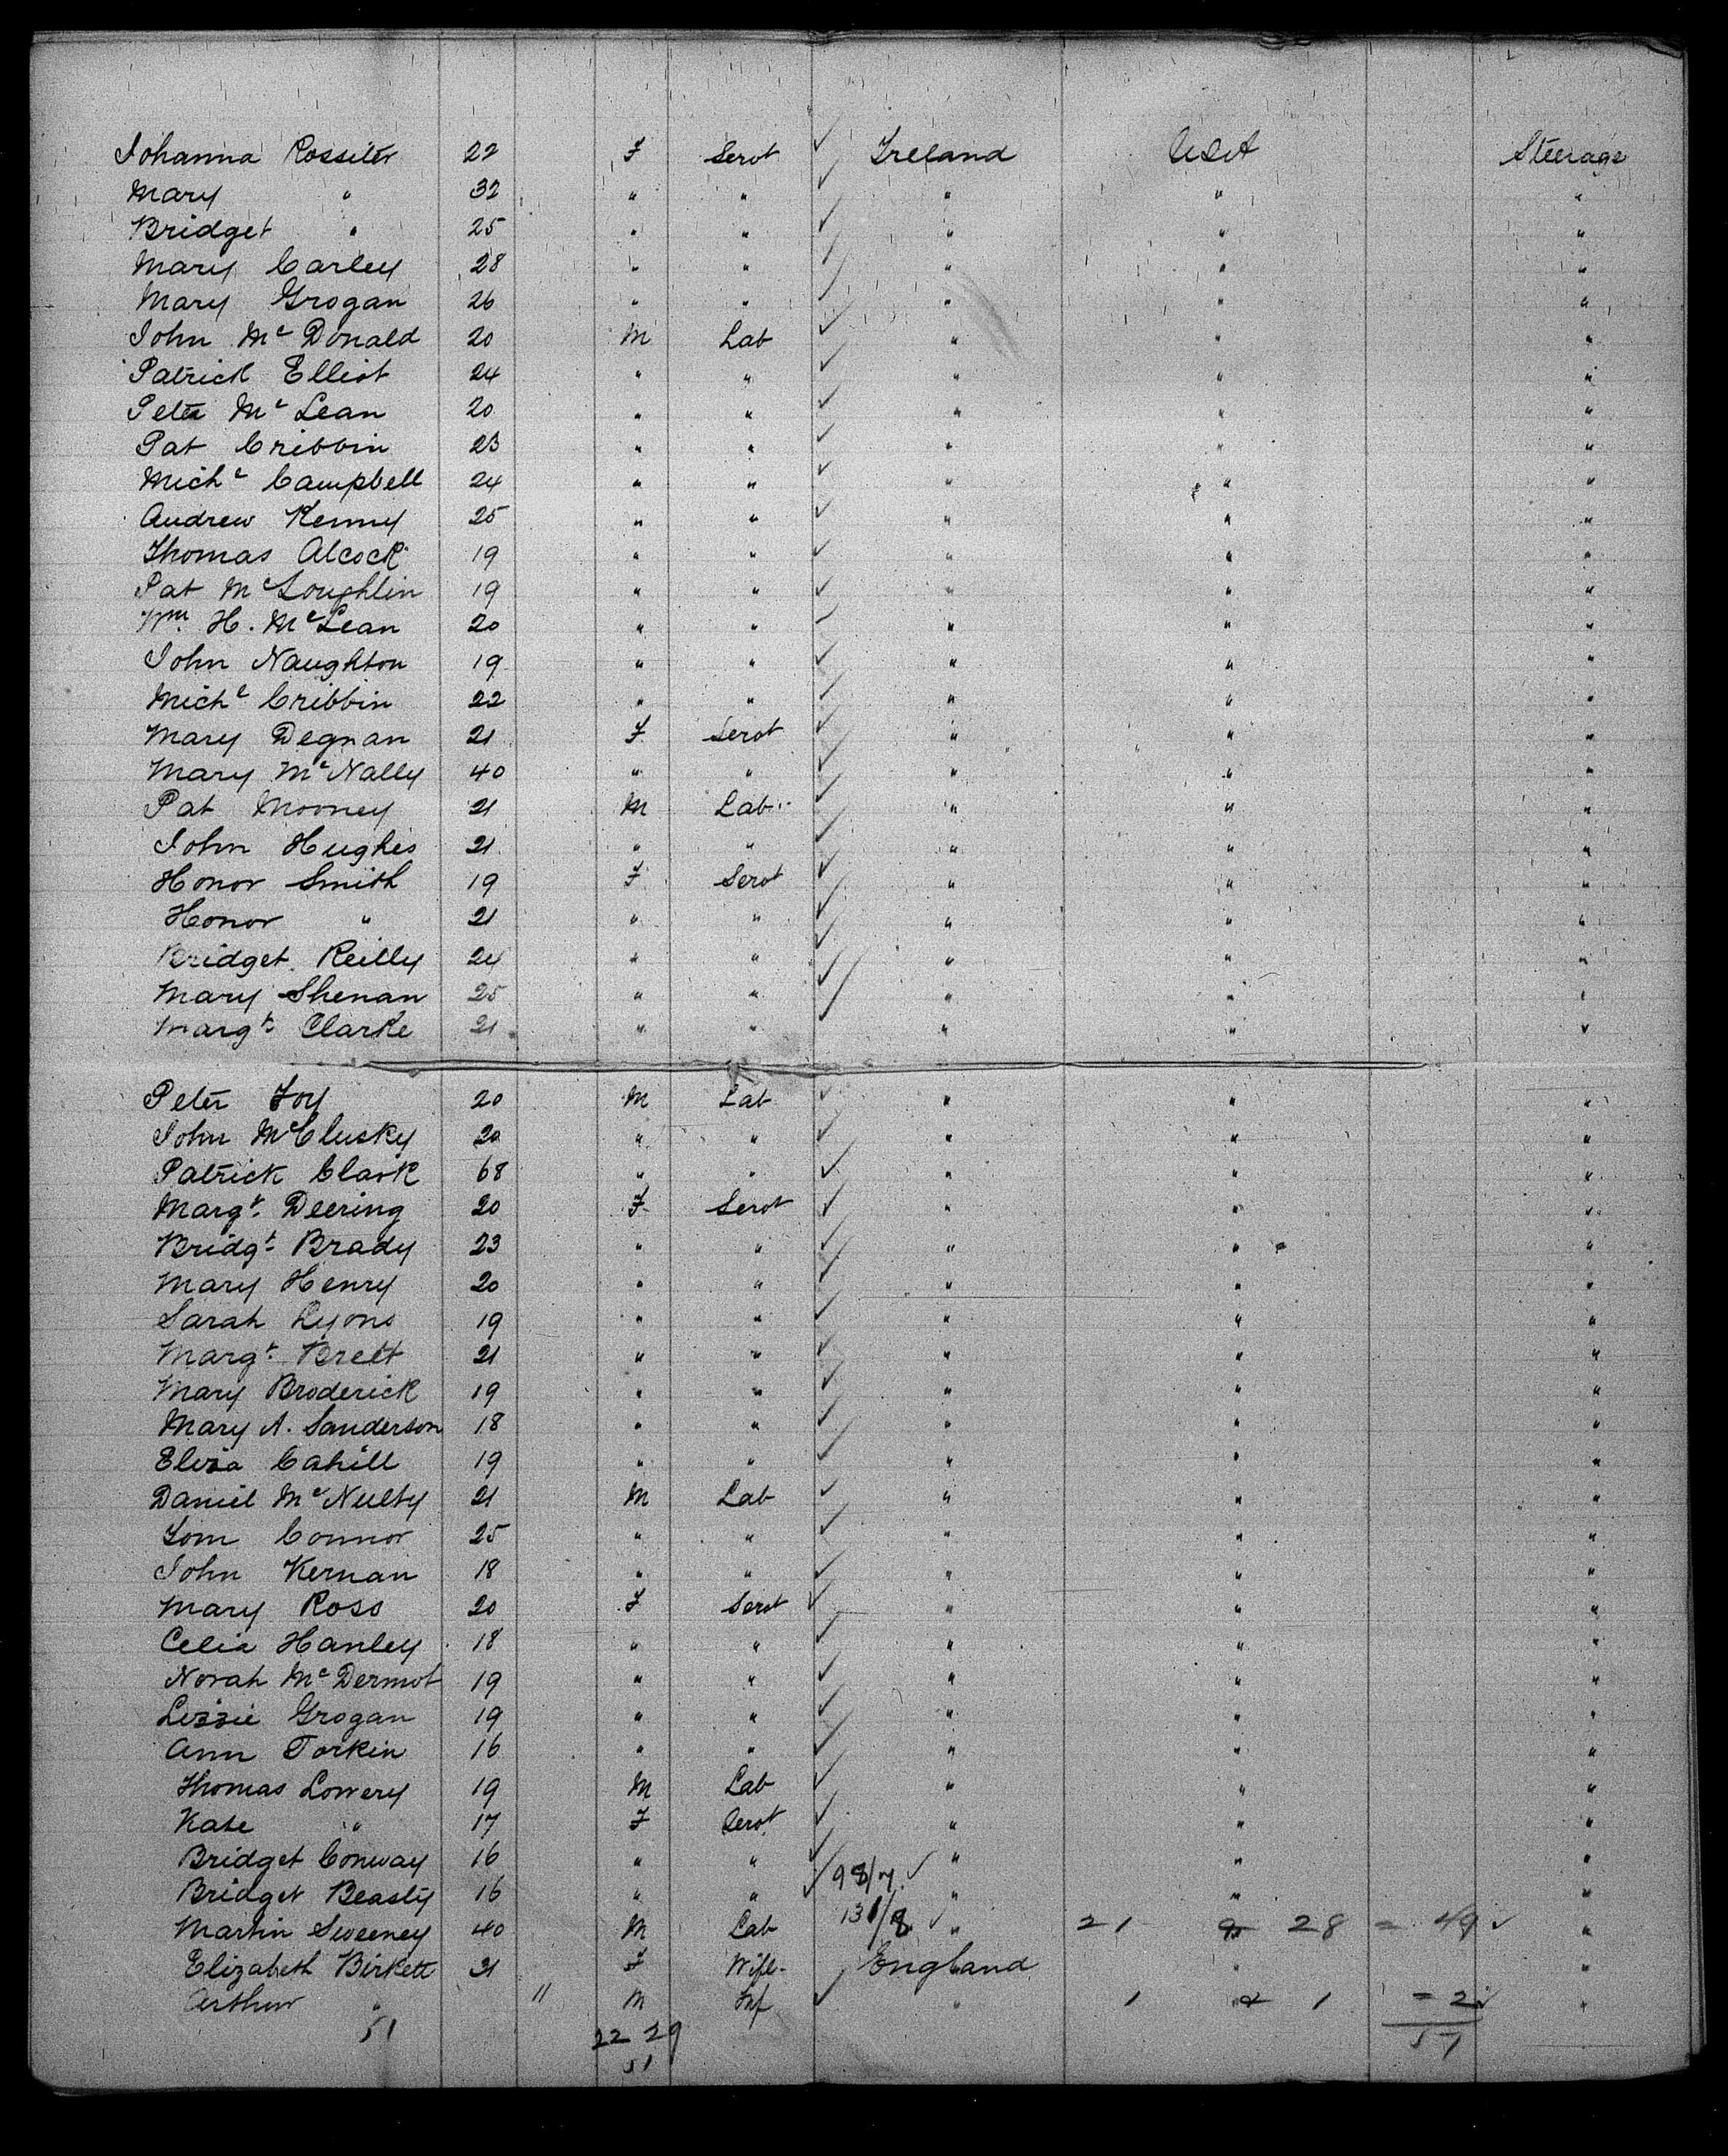 Johanna Rossiter 22 F Servt Ireland USA Steerage
Mary " 32 " " " " "
Bridget " 25 " " " " "
Mary Carley 28 " " " " "
Mary Grogan 26 " " " " "
John Mc Donald 20 M Lab " " "
Patrick Elliot 24 " " " " "
Peter Mc Lean 20 " " " " "
Pat Cribbin 23 " " " " "
Michl Campbell 24 " " " " "
Andrew Kenny 25 " " " " "
Thomas Alcock 19 " " " " "
Pat McLoughlin 19 " " " " "
Wm. H. McLean 20 " " " " "
John Naughton 19 " " " " "
Michl Cribbin 22 " " " " "
Mary Degnan 21 F Servt " " "
Mary McNally 40 " " " " "
Pat Mooney 21 M Lab " " "
John Hughes 21 " " " " "
Honor Smith 19 F Servt " " "
Honor " 21 " " " " "
Bridget Reilly 24 " " " " "
Mary Shenan 25 " " " " "
Margt. Clarke 21 " " " " "
Peter Foy 20 M Lab " " "
John McClusky 20 " " " " "
Patrick Clark 68 " " " " "
Margt. Deering 20 F Servt " " "
Bridgt. Brady 23 " " " " "
Mary Henry 20 " " " " "
Sarah Lyons 19 " " " " "
Margt. Brett 21 " " " " "
Mary Broderick 19 " " " " "
Mary A. Sanderson 18 " " " " "
Eliza Cahill 19 " " " " "
Daniel McNulty 21 M Lab " " "
Tom Connor 25 " " " " "
John Kernan 18 " " " " "
Mary Ross 20 F Servt " " "
Celia Hanley 18 " " " " "
Norah McDermot 19 " " " " "
Lizzie Grogan 19 " " " " "
Ann Torkin 16 " " " " "
Thomas Lowery 19 M Lab " " "
Kate " 17 F Servt " " "
Bridget Conway 16 " " " " "
Bridget Beasty 16 " " " " "
Martin Sweeney 40 M Lab " 21 28 = 49 "
Elizabeth Birkett 31 F Wife England " "
Arthur " 11 M Inf " 1 1 = 2 "
51 22 29 51
51